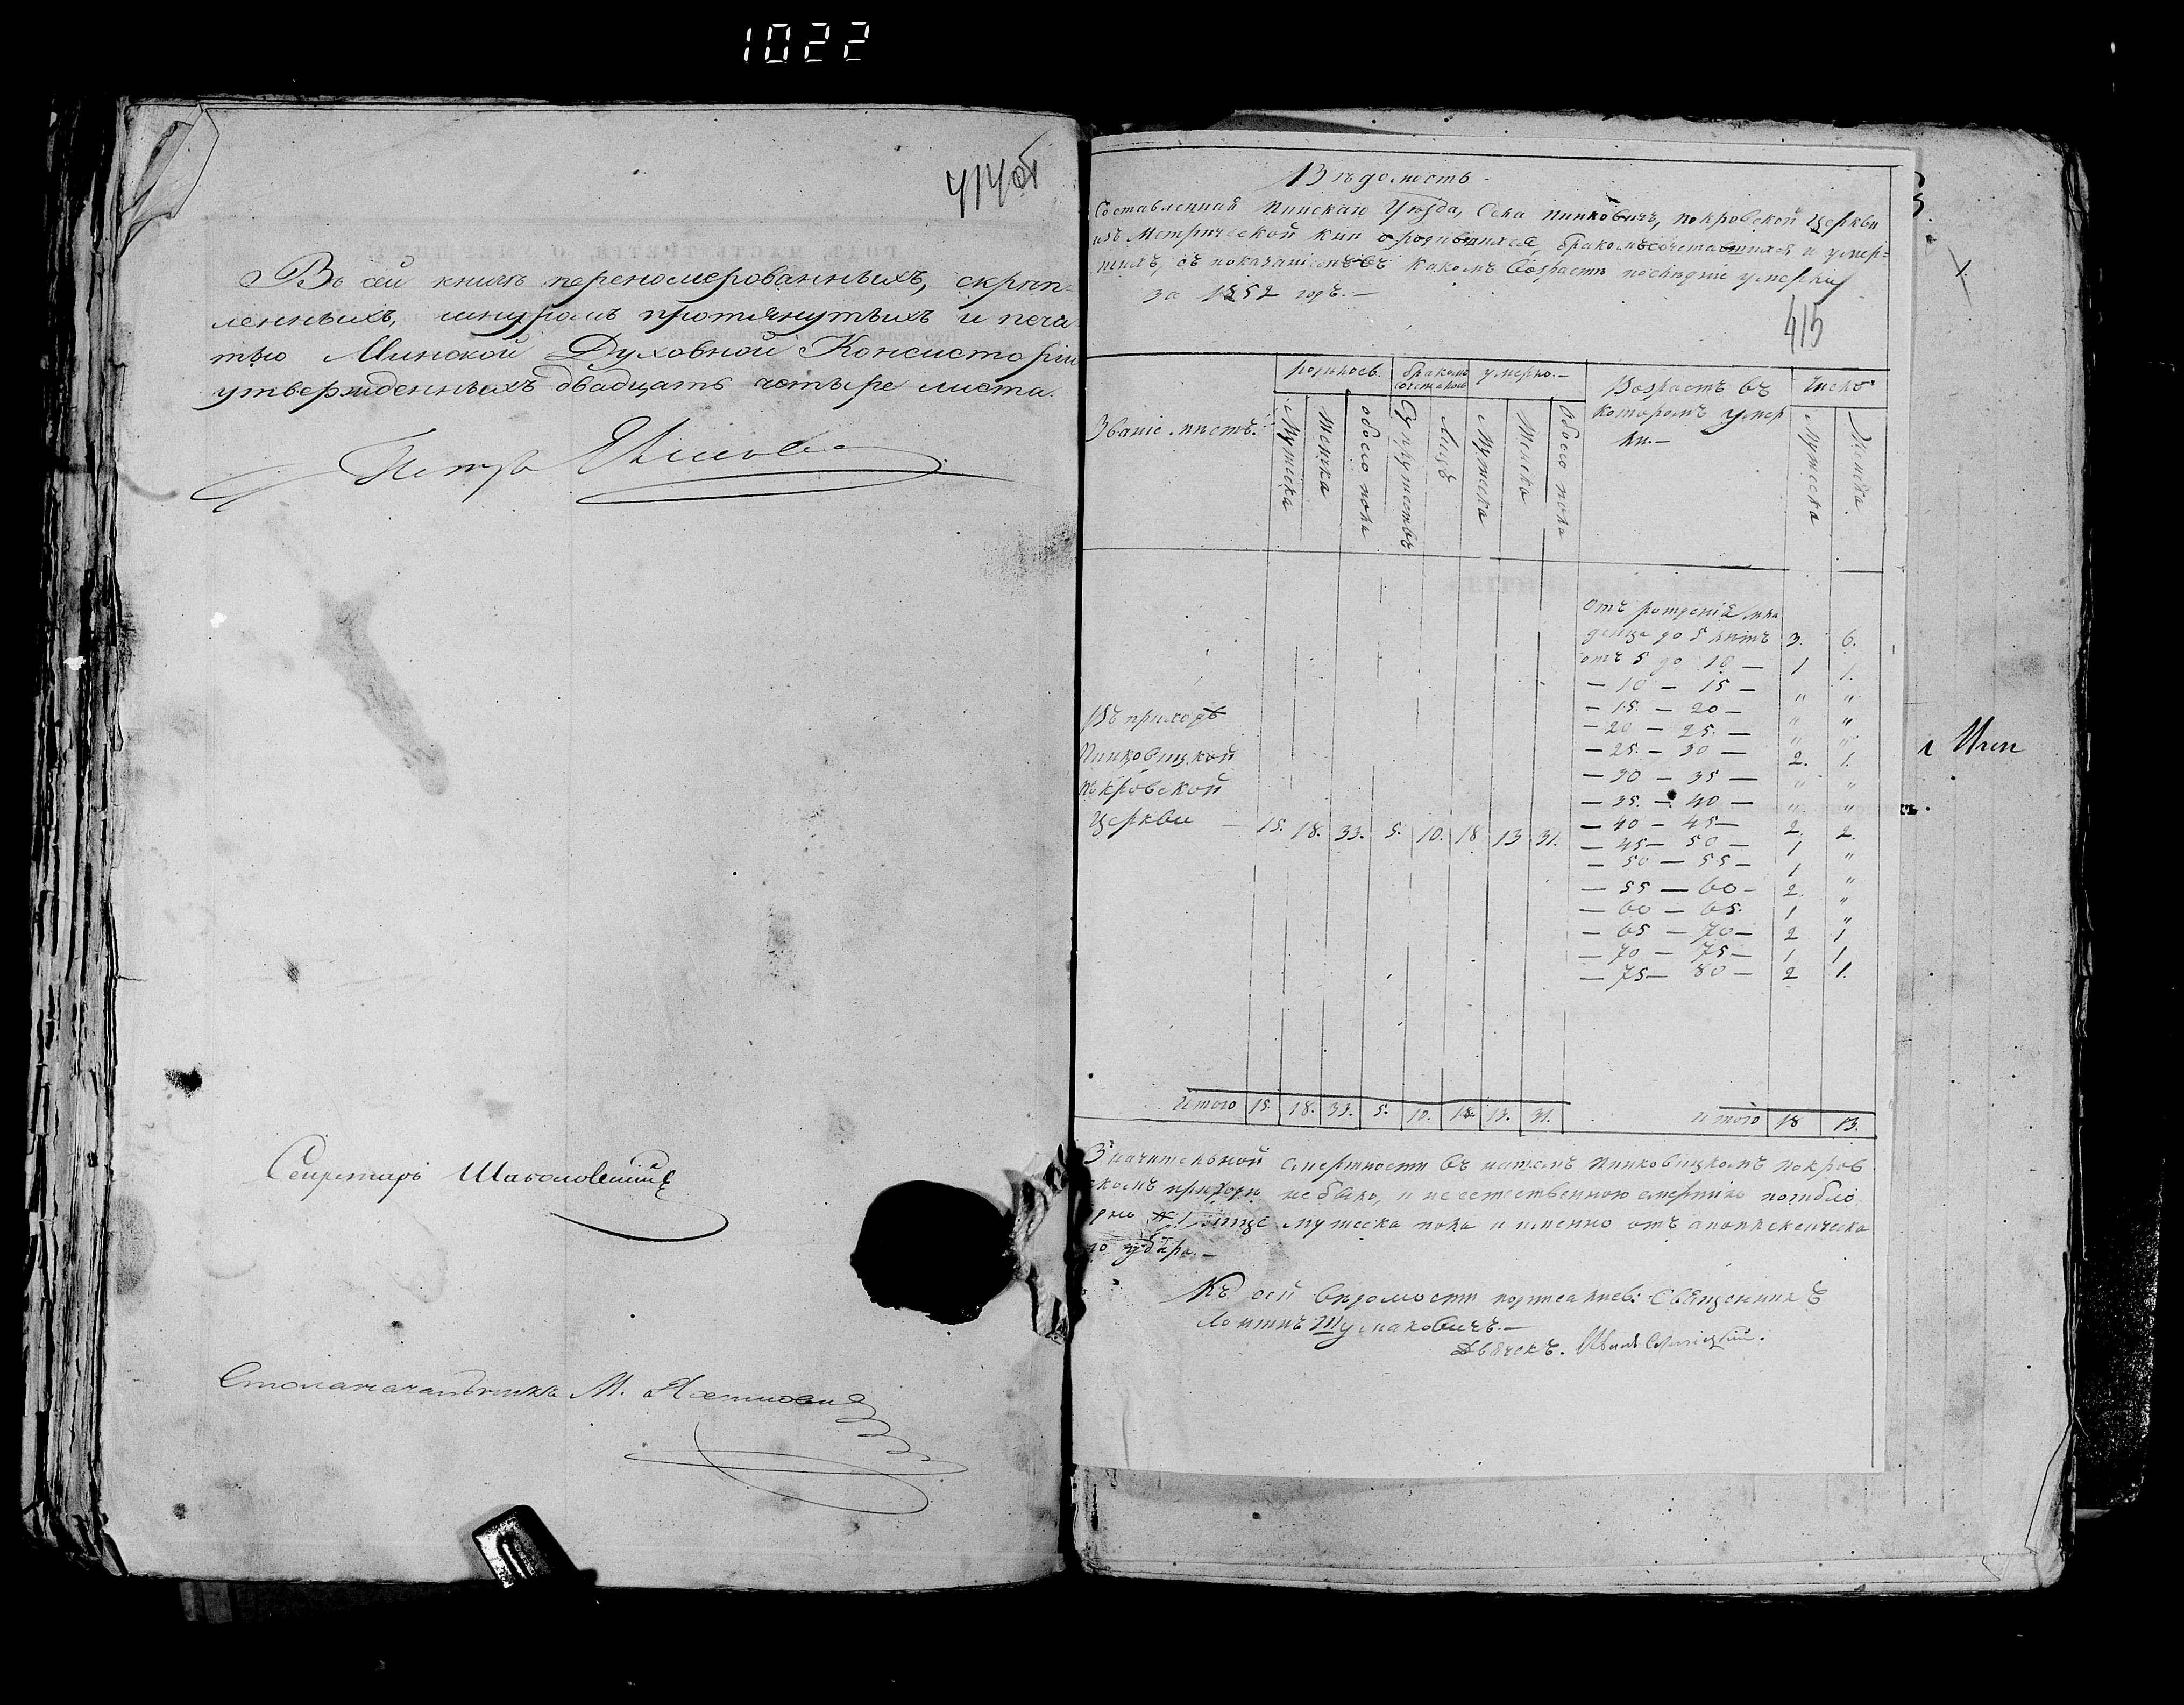 1022
414об
Въ сей книгѣ переномерованныхъ, скрѣп-
ленныхъ, шнуромъ протянутыхъ и печа-
тью Минской Духовной Консисторіи
утвержденныхъ двадцать четыре листа.
Петръ
Секретарь
Столоначальникъ М.
Вѣдомость
Составленная Пинскаго Уѣзда, Села Пинковичъ, Покровской Церкви
изъ Метрической книги о родившихся, бракомъ сочетавшихся и умер-
шихъ, съ показаніемъ въ какомъ возрастѣ послѣдніе умерли
за 1852 годъ.—
415
Званіе мѣстъ.
родилось.
бракомъ
умерло.—
Возрастъ въ
которомъ умер
ли.—
Число
Мужеска
Женска
обоего пола
Супружествъ
Лицъ
Мужеска
Женска
Обоего пола
Мужеска
Женска
Отъ рожденія мла
денца до 5 лѣтъ 3. 6.
отъ 5 до 10 — 1 1.
— 10 — 15 — " "
— 15. — 20 — " "
— 20 — 25. — " "
— 25. — 30 — 2. 1.
— 30 — 35 — " "
— 35. — 40 — " "
— 40 — 45 — 2. 2.
— 45 — 50 — 1 "
— 50 — 55 — 1 "
— 55 — 60 — 2. "
— 60 — 65. 1 "
— 65 — 70 — 2 1
— 70 — 75 — 1 1
— 75 — 80 — 2 1.
Въ приходѣ
Пинковицкой
Покровской
Церкви — 15. 18. 33. 5. 10. 18 13 31.
Итого 15. 18. 33. 5. 10. 18. 13. 31.
Итого 18 13.
Значительной смертности въ нашемъ Пинковицкомъ Покров
скомъ приходѣ не было, и не естественною смертію погибло
одно лице мужеска пола и именно отъ апоплексическа
го удара.—
Къ сей вѣдомости подписались: Священникъ
Шумаковичъ.—
Дьячекъ. Иванъ